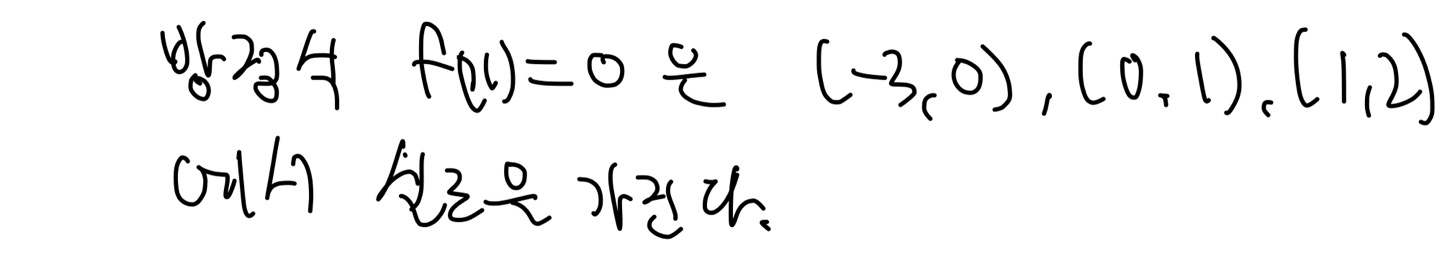 방정식 f(x)=0 은 (-3,0), (0,1), (1,2)
에서 실근을 가진다.